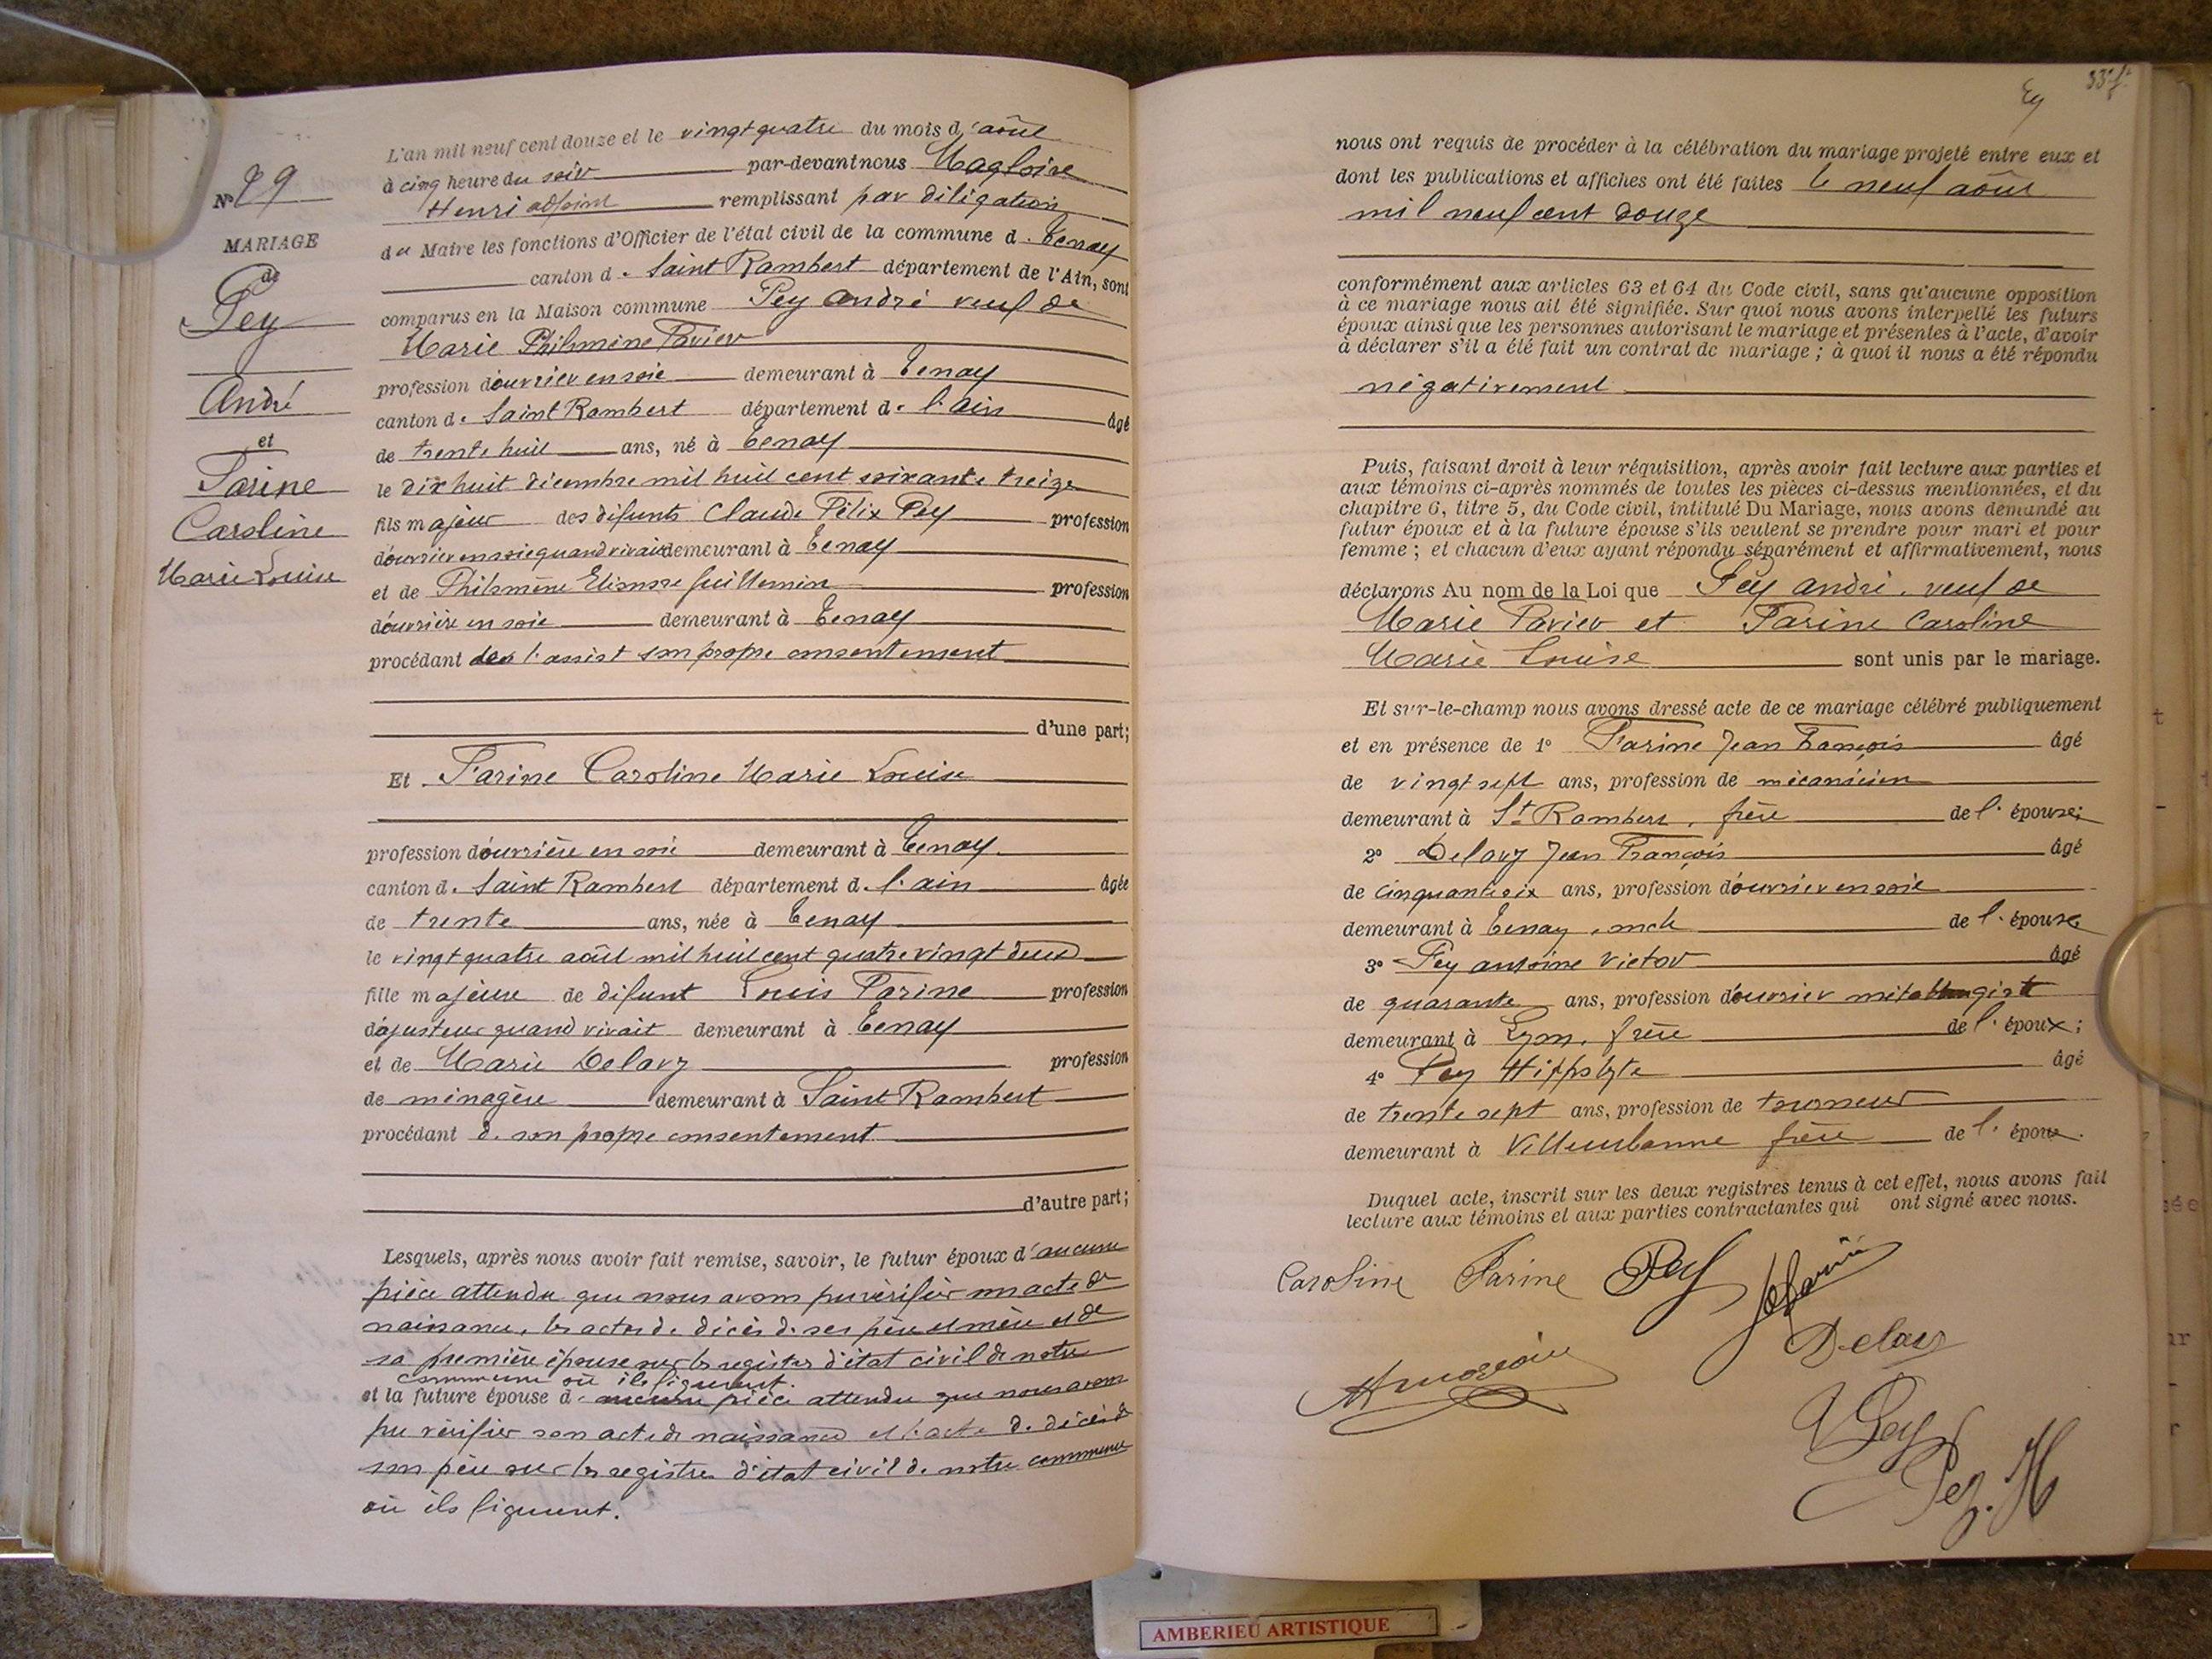 L'an mil neuf cent douze et le vingt quatre du mois d'août
à cinq heure du soir par-devant nous Magloire
Henri adjoint remplissant par
du Maire les fonctions d'Officier de l'état civil de la commune de Tenay
canton de Saint Rambert département de l'Ain, sont
comparus en la Maison commune Pey André veuf de
Marie Philomine Pavier
profession d'ouvrier en soie demeurant à Tenay
canton de Saint Rambert département de l'ain âgé
de trente huit ans, né à Tenay
le dix huit décembre mil huit cent soixante treize
fils majeur des défunts Claude Félix Pey profession
d'ouvrier en soie quand vivait demeurant à Tenay
et de Philomène Eléonore Guillemin profession
d'ouvrière en soie demeurant à Tenay
procédant son propre consentement
d'une part;
Et Farine Caroline Marie Louise
profession d'ouvrière en soie demeurant à Tenay
canton de Saint Rambert département de l'ain âgée
de trente ans, née à Tenay
le vingt quatre août mil huit cent quatre vingt deux
fille majeure de défunt Louis Farine profession
d'ajusteur quand vivait demeurant à Tenay
et de Marie Delorz profession
de ménagère demeurant à Saint Rambert
procédant de son propre consentement
d'autre part;
Lesquels, après nous avoir fait remise, savoir, le futur époux d'aucune
pièce attendu que nous avons pu vérifier son acte de
naissance, les actes de décès de ses père et mère et de
sa première épouse sur les registres d'état civil de notre
commune où ils figurent.
et la future épouse d'aucune pièce attendu que nous avons
pu vérifier son acte de naissance et l'acte de décès de
son père sur les registres d'état civil de notre commune
où ils figurent.
N° 29
MARIAGE
de
Pey
André
et
Farine
Caroline
Marie Louise
nous ont requis de procéder à la célébration du mariage projeté entre eux et
dont les publications et affiches ont été faites le neuf août
mil neuf cent douze
conformément aux articles 63 et 64 du Code civil, sans qu'aucune opposition
à ce mariage nous ait été signifiée. Sur quoi nous avons interpellé les futurs
époux ainsi que les personnes autorisant le mariage et présentes à l'acte, d'avoir
à déclarer s'il a été fait un contrat de mariage; à quoi il nous a été répondu
négativement
Puis, faisant droit à leur réquisition, après avoir fait lecture aux parties et
aux témoins ci-après nommés de toutes les pièces ci-dessus mentionnées, et du
chapitre 6, titre 5, du Code civil, intitulé Du Mariage, nous avons demandé au
futur époux et à la future épouse s'ils veulent se prendre pour mari et pour
femme; et chacun d'eux ayant répondu séparément et affirmativement, nous
déclarons Au nom de la Loi que Pey André, veuf de
Marie Pavier et Farine Caroline
Marie Louise sont unis par le mariage.
Et sur-le-champ nous avons dressé acte de ce mariage célébré publiquement
et en présence de 1° Farine Jean François âgé
de vingt sept ans, profession de mécanicien
demeurant à St Rambert, frère de l'épouse;
2° Delorz Jean François âgé
de cinquante six ans, profession d'ouvrier en soie
demeurant à Tenay, oncle de l'épouse
3° Pey antoine Victor âgé
de quarante ans, profession d'ouvrier métallurgiste
demeurant à Lyon, frère de l'époux;
4° Pey Hippolyte âgé
de trente sept ans, profession de tourneur
demeurant à Villeurbanne frère de l'époux.
Duquel acte, inscrit sur les deux registres tenus à cet effet, nous avons fait
lecture aux témoins et aux parties contractantes qui ont signé avec nous.
Caroline Farine Pey
Delorz
V Pey
Pey. H
AMBERIEU ARTISTIQUE